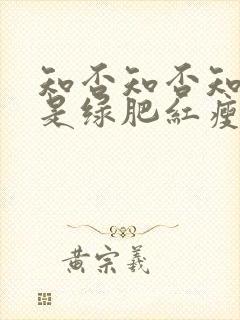 知否知否知
是绿肥红瘦
黄宗羲